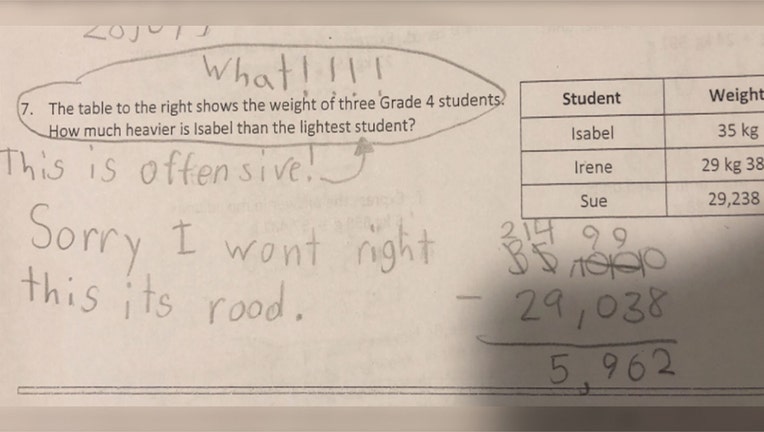 What!!!!
7. The table to the right shows the weight of three Grade 4 students.
How much heavier is Isabel than the lightest student?
This is offensive!
Sorry I wont right
this its rood.
Student Weight
Isabel 35 kg
Irene 29 kg 38
Sue 29,238
2 14 9 9
35
- 29,038
5,962